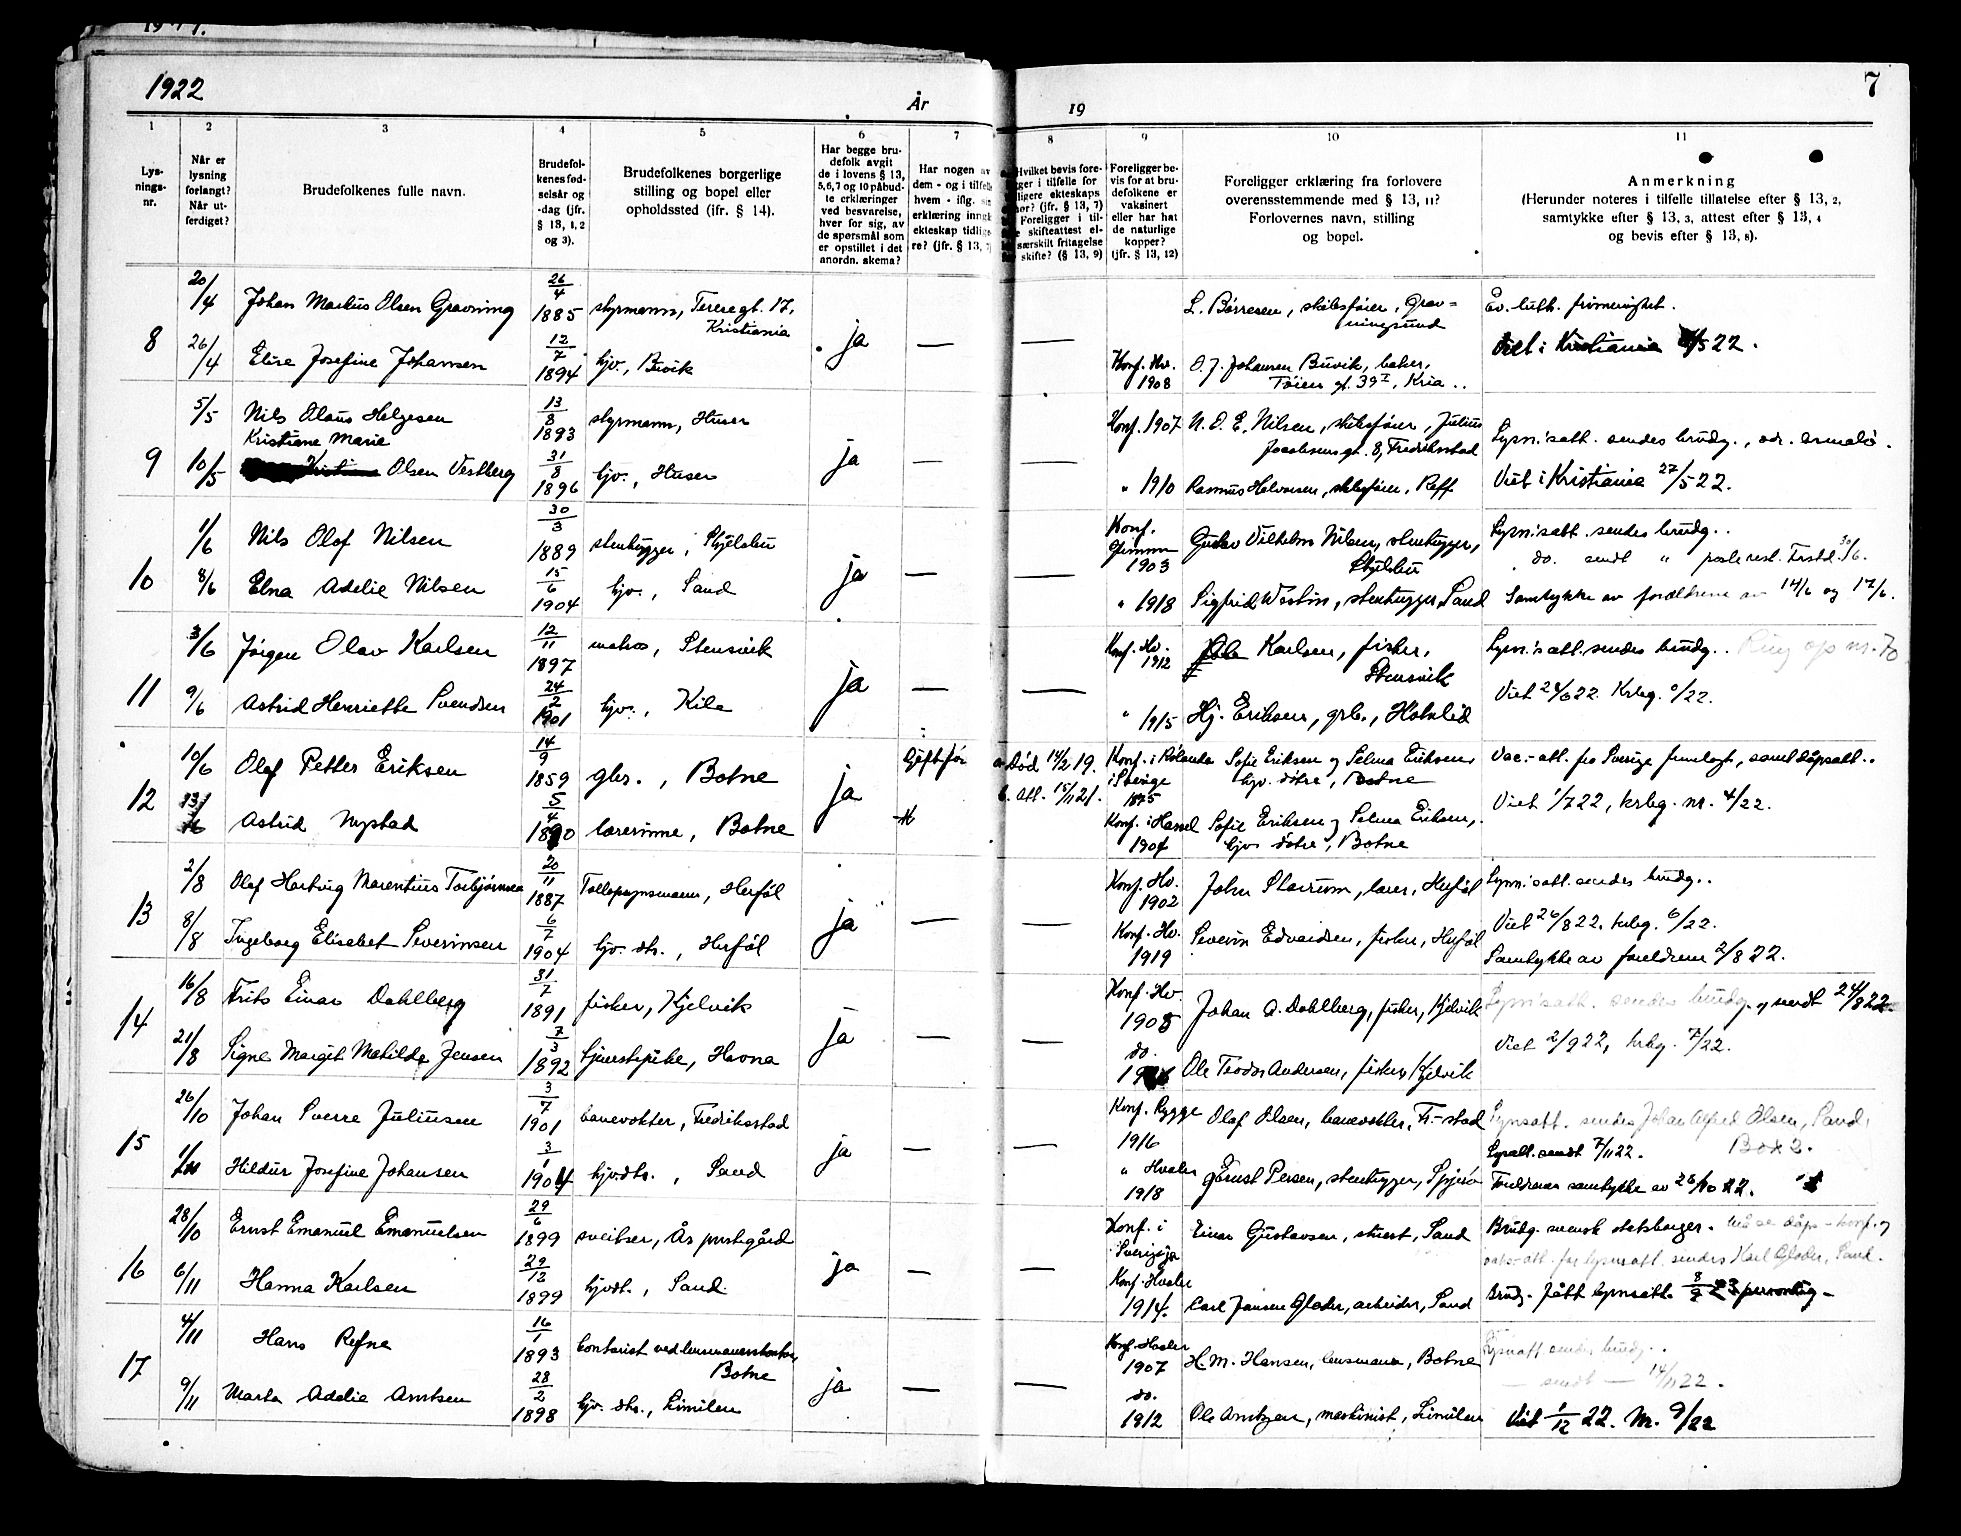 1922
År
19
7
1
2
3
4
5
6
7
8
9
10
11
Lys-
nings-
nr.
Når er
lysning
forlangt?
Når ut-
ferdiget?
Brudefolkenes fulle navn.
Brudefol-
kenes fød-
selsår og
-dag (jfr.
§ 13, 1, 2
og 3).
Brudefolkenes borgerlige
stilling og bopel eller
opholdssted (ifr. § 14).
Har begge bru-
defolk avgit
de i lovens § 13,
5,6,7 og 10 påbud-
te erklæringer
ved besvarelse,
hver for sig, av
de spørsmål som
er opstillet i det
anordn. skema?
Har nogen av
dem - og i tilfelle
hvem - iflg. sin
erklæring inngå
ekteskap tidlige
re? (jfr. § 13, 7
Hvilket bevis fore-
ger i tilfelle for
ligere ekteskaps
hør? (jfr. § 13, 7)
Foreligger i til-
skifteattest el-
særskilt fritagelse
skifte? (§ 13, 9)
Foreligger be-
vis for at bru-
defolkene er
vaksinert
eller har hat
de naturlige
kopper?
(jfr. § 13, 12)
Foreligger erklæring fra forlovere
overensstemmende med § 13, 11?
Forlovernes navn, stilling
og bopel.
Anmerkning
(Herunder noteres i tilfelle tillatelse efter § 13, 2,
samtykke efter § 13, 3, attest efter § 13, 4
og bevis efter § 13, 8).
8
20/4 Johan Markus Olsen Gravning 26/4 1885 styrmann, Teresegt. 17, Kristiania
L. Børresen, skibsfører, Grav-
ningsund
Ev. luth. frimenighet.
26/4 Elise Josefine Johansen 12/7 1894 hjv., Buvik
ja — —
Konf. Hv. 1908
O. J. Johansen Buvik, baker,
Tøien gt. 39 I, Kria..
Viet i Kristiania /5 22.
9
5/5 Nils Olaus Helgesen 13/8 1893 styrmann, Huser
Konf. 1907 N. O. E. Nilsen, skibsfører, Julius
Jacobsensgt. 8, Fredrikstad
Lysn.'satt. sendes brudg.,
Kristiane Marie
10/5 Olsen Vestberg 31/8 1896 hjv., Huser
ja — —
" 1910 Rasmus Halvorsen, skibsfører, Reff
Viet i Kristiania 27/5 22.
10
1/6 Nils Olof Nilsen 30/3 1889 stenhugger, Skjelsbu
Konf. 1903
Gustav Vilhelm Nilsen, stenhugger,
Skjelsbu
Lysn.'satt. sendes brudg..
do. sendt " poste rest. Frstd. 30/6.
8/6 Elna Adelie Nilsen 15/6 1904 hjv., Sand
ja — —
" 1918 Sigfrid Westin, stenhugger, Sand
Samtykke av forældrene av 14/6 og 17/6.
11
3/6 Jørgen Olav Karlsen 12/11 1897 matros, Stensvik
Konf. Hv. 1912
Karlsen, fisker,
Stensvik
Lysn.'satt. sendes brudg.. Ring op nr. 70
9/6 Astrid Henriette Svendsen 24/2 1901 hjv., Kile
ja — —
" 1915 Hj. Eriksen, grb., Holmlid
Viet 24/6 22. Krbg. /22.
12
10/6 Olaf Petter Eriksen 14/9 1859 gbr., Botne
Gift før
a. Død 14/2 19.
b. att. 15/11 21.
Konf. i Rølanda
i Sverige
1875
Sofie Eriksen og Selma Eriksen,
hjv. døtre, Botne
Vac.-att. fra Sverige fremlagt, samt dåpsatt..
13/ Astrid Nystad 5/4 1890 lærerinne, Botne
ja
Konf. i Hassel
1904
Sofie Eriksen og Selma Eriksen,
hjv. døtre, Botne
Viet 1/7 22, krbg. nr. 4/22.
13
2/8 Olaf Hartvig Marentius Torbjørnsen 20/11 1887 Tollopsynsmann, Herføl
Konf. Hv. 1902
John Stavrum, lærer, Herføl
Lysn.'satt. sendes brudg..
8/8 Ingeborg Elisebet Severinsen 6/7 1904 hjv. dtr., Herføl
ja — —
Konf. Hv. 1919
Severin Edvardsen, fisker, Herføl
Viet 26/8 22. krbg. 6/22.
Samtykke av foreldrene 2/8 22.
14
16/8 Frits Einar Dahlberg 31/7 1891 fisker, Kjelvik
Konf. Hv. 1908
Johan A. Dahlberg, fisker, Kjelvik
Lysn.'satt. sendes brudg. sendt 24/8 22
21/8 Signe Margit Matilde Jensen 7/3 1892 tjenestepike, Hvona
ja — —
do.
Ole Teodor Andersen, fisker, Kjelvik
Viet 2/9 22, krbg. 7/22.
15
26/10 Johan Sverre Juliussen 3/7 1901 banevokter, Fredrikstad
Konf. Rygge 1916
Olaf Olsen, banevokter, Fr.-stad
Lysnsatt. sendes Johan Alfred Olsen, Sand,
Box 2.
Lysatt. sendt 7/11 22.
1/11 Hildur Josefine Johansen 3/1 1904 hjv.dtr., Sand
ja — —
" Hvaler 1918
Ernst Persen, stenhugger, Spjærø
Foreldrenes samtykke av 26/10 22.
16
28/10 Ernst Emanuel Emanuelsen 29/6 1899 sveitser, Ås prestegård
Konf. i
Sverige ja
Einar Gustavsen, stuert, Sand
Brudg. svensk statsborger.
lysnsatt. sendes Karl Gloder, Sand.
6/11 Hanna Karlsen 29/12 1899 hjvdt., Sand
ja — —
Konf. Hvaler 1914.
Carl Jansen Gloder, arbeider, Sand
Brudg. fått lysnsatt. 8/9 23 personlig
17
4/11 Hans Refne 16/1 1893 kontorist ved lensmannskontor,
Botne
Konf. Hvaler 1907
H. M. Hansen, lensmann, Botne
Lysnatt. sendes brudg..
— sendt — 14/11 22.
9/11 Marta Adelie Arntsen 28/2 1898 hjv. dtr., Limilen
ja — —
do. 1912
Ole Arntzen, maskinist, Limilen
Viet 1/12 22. Nr. 9/22